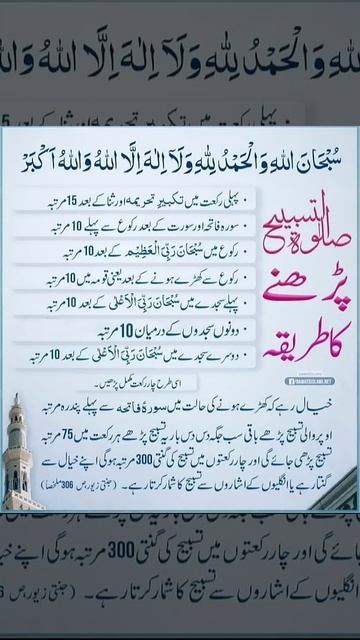 سُبْحَانَ اللّٰهِ وَالْحَمْدُ لِلّٰهِ وَلَآ اِلٰهَ اِلَّا اللّٰهُ وَاللّٰهُ اَكْبَرْ
صلوٰۃ التسبیح
پڑھنے
کا طریقہ
• پہلی رکعت میں تکبیرِ تحریمہ اور ثنا کے بعد 15 مرتبہ
• سورہ فاتحہ اور سورت کے بعد رکوع سے پہلے 10 مرتبہ
• رکوع میں سُبْحَانَ رَبِّیَ الْعَظِیْم کے بعد 10 مرتبہ
• رکوع سے کھڑے ہونے کے بعد یعنی قومہ میں 10 مرتبہ
• پہلے سجدے میں سُبْحَانَ رَبِّیَ الْاَعْلٰی کے بعد 10 مرتبہ
• دونوں سجدوں کے درمیان 10 مرتبہ
• دوسرے سجدے میں سُبْحَانَ رَبِّیَ الْاَعْلٰی کے بعد 10 مرتبہ
اسی طرح چار رکعت مکمل پڑھیں۔
DAWATEISLAMI.NET
خیال رہے کہ کھڑے ہونے کی حالت میں سورۂ فاتحہ سے پہلے پندرہ مرتبہ
اوپر والی تسبیح پڑھے باقی سب جگہ دس دس بار یہ تسبیح پڑھے ہر رکعت میں 75 مرتبہ
تسبیح پڑھی جائے گی اور چار رکعتوں میں تسبیح کی گنتی 300 مرتبہ ہوگی اپنے خیال سے
گنتا رہے یا انگلیوں کے اشاروں سے تسبیح کا شمار کرتا رہے۔ (جنتی زیور ص 306 ملخصا)